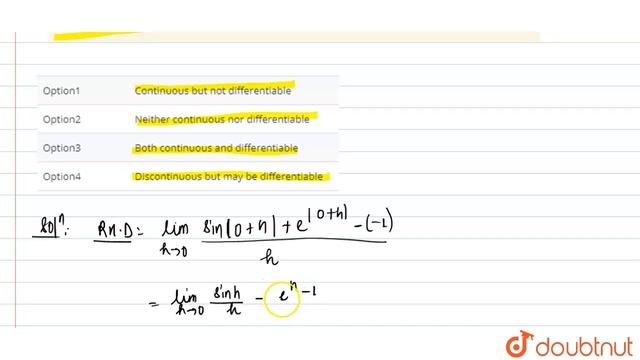 Option1 Continuous but not differentiable
Option2 Neither continuous nor differentiable
Option3 Both continuous and differentiable
Option4 Discontinuous but may be differentiable
Solⁿ: R.H.D = lim h→0 (sin|0+h| + e^|0+h| - (-1)) / h
= lim h→0 sinh/h - e^h - 1
doubtnut